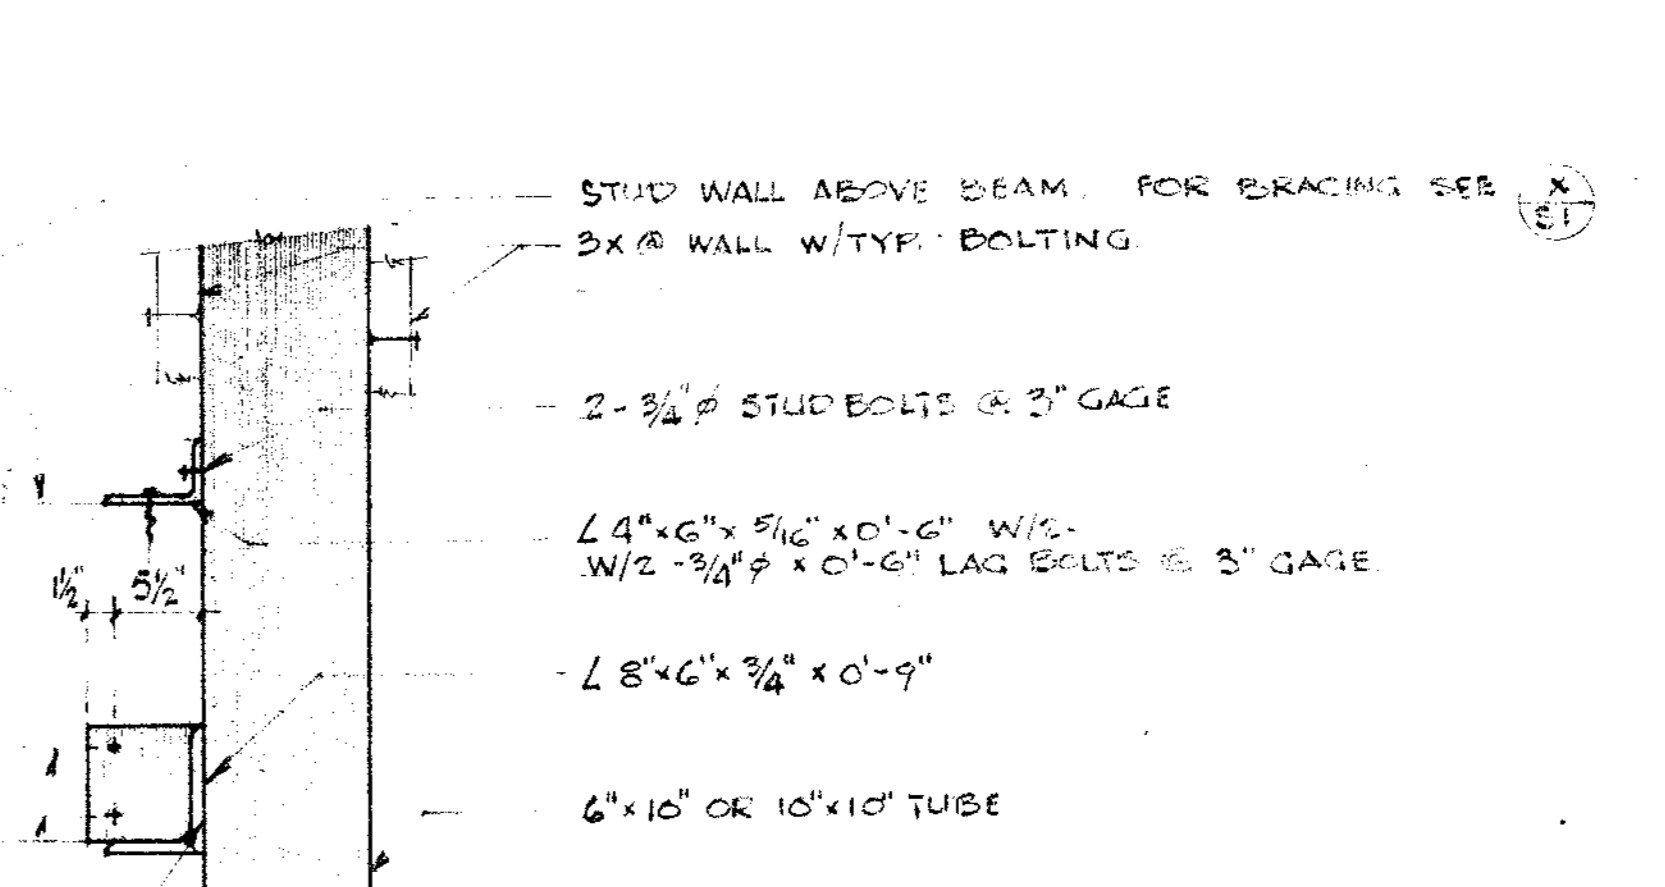 STUD WALL ABOVE BEAM. FOR BRACING SEE X S1
3X @ WALL W/TYP. BOLTING.
2 - 3/4" ∅ STUD BOLTS @ 3" GAGE
L 4"x6"x 5/16" x 0'-6" W/2-
W/2 - 3/4" ∅ x 0'-6" LAG BOLTS @ 3" GAGE.
1 1/2" 5 1/2"
L 8"x6"x 3/4" x 0'-9"
6"x10" OR 10"x10" TUBE